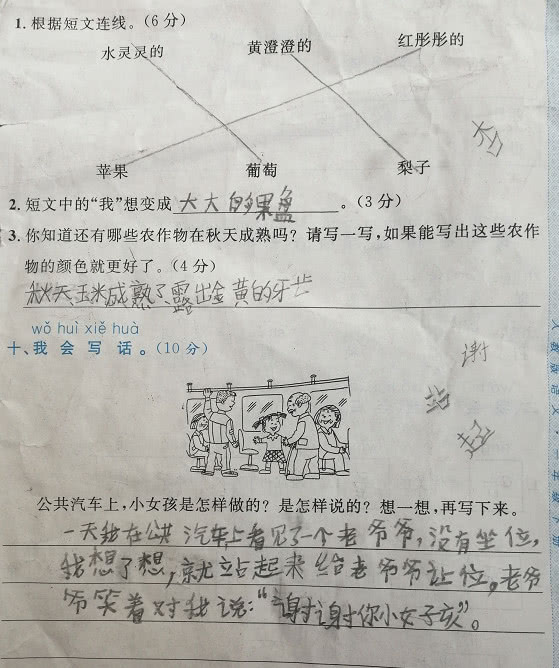 1.根据短文连线。(6分)
水灵灵的 黄澄澄的 红彤彤的
苹果 葡萄 梨子
2.短文中的“我”想变成 大大的果盘 。(3分)
3.你知道还有哪些农作物在秋天成熟吗？请写一写,如果能写出这些农作
物的颜色就更好了。(4分)
秋天,玉米成熟了,露出金黄的牙齿
wǒ huì xiě huà
十、我会写话。(10分)
谢
站
起
公共汽车上,小女孩是怎样做的？是怎样说的？想一想,再写下来。
一天我在公共汽车上看见了一个老爷爷,没有坐位,
我想了想,就站起来给老爷爷让位。老爷
爷笑着对我说:“谢谢你小女子孩”。